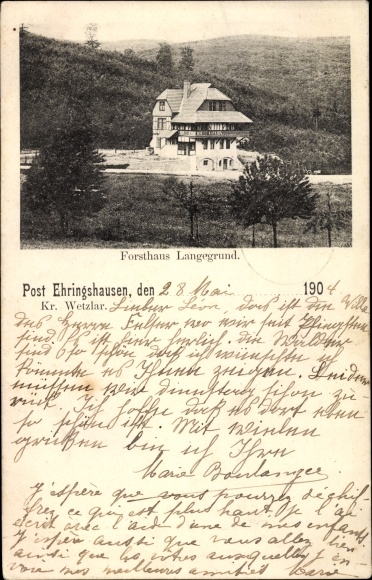 Forsthaus Langegrund.
Post Ehringshausen, den 28 Mai 1904
Kr. Wetzlar. Lieber Léon, dass ist die Villa
des Herrn wo wir seit Pfingsten
sind. Es ist hier herlich. die Wälder
sind so schön dass ich wünschte ich
könnte es Ihnen zeigen. Leider
müssen wir dienstag schon zu-
rück. Ich hoffe dass es dort eben
so schön ist. Mit vielen
grüßen bin ich Ihre
Marie Boulanger.
J'espère que vous pourrez déchif-
frez ce qui est plus haut. Je l'ai
écrit avec l'aide d'une de mes enfants
J'espère aussi que vous allez bien
ainsi que les vôtres auxquelles j'en-
voie mes meilleures amitiés Marie